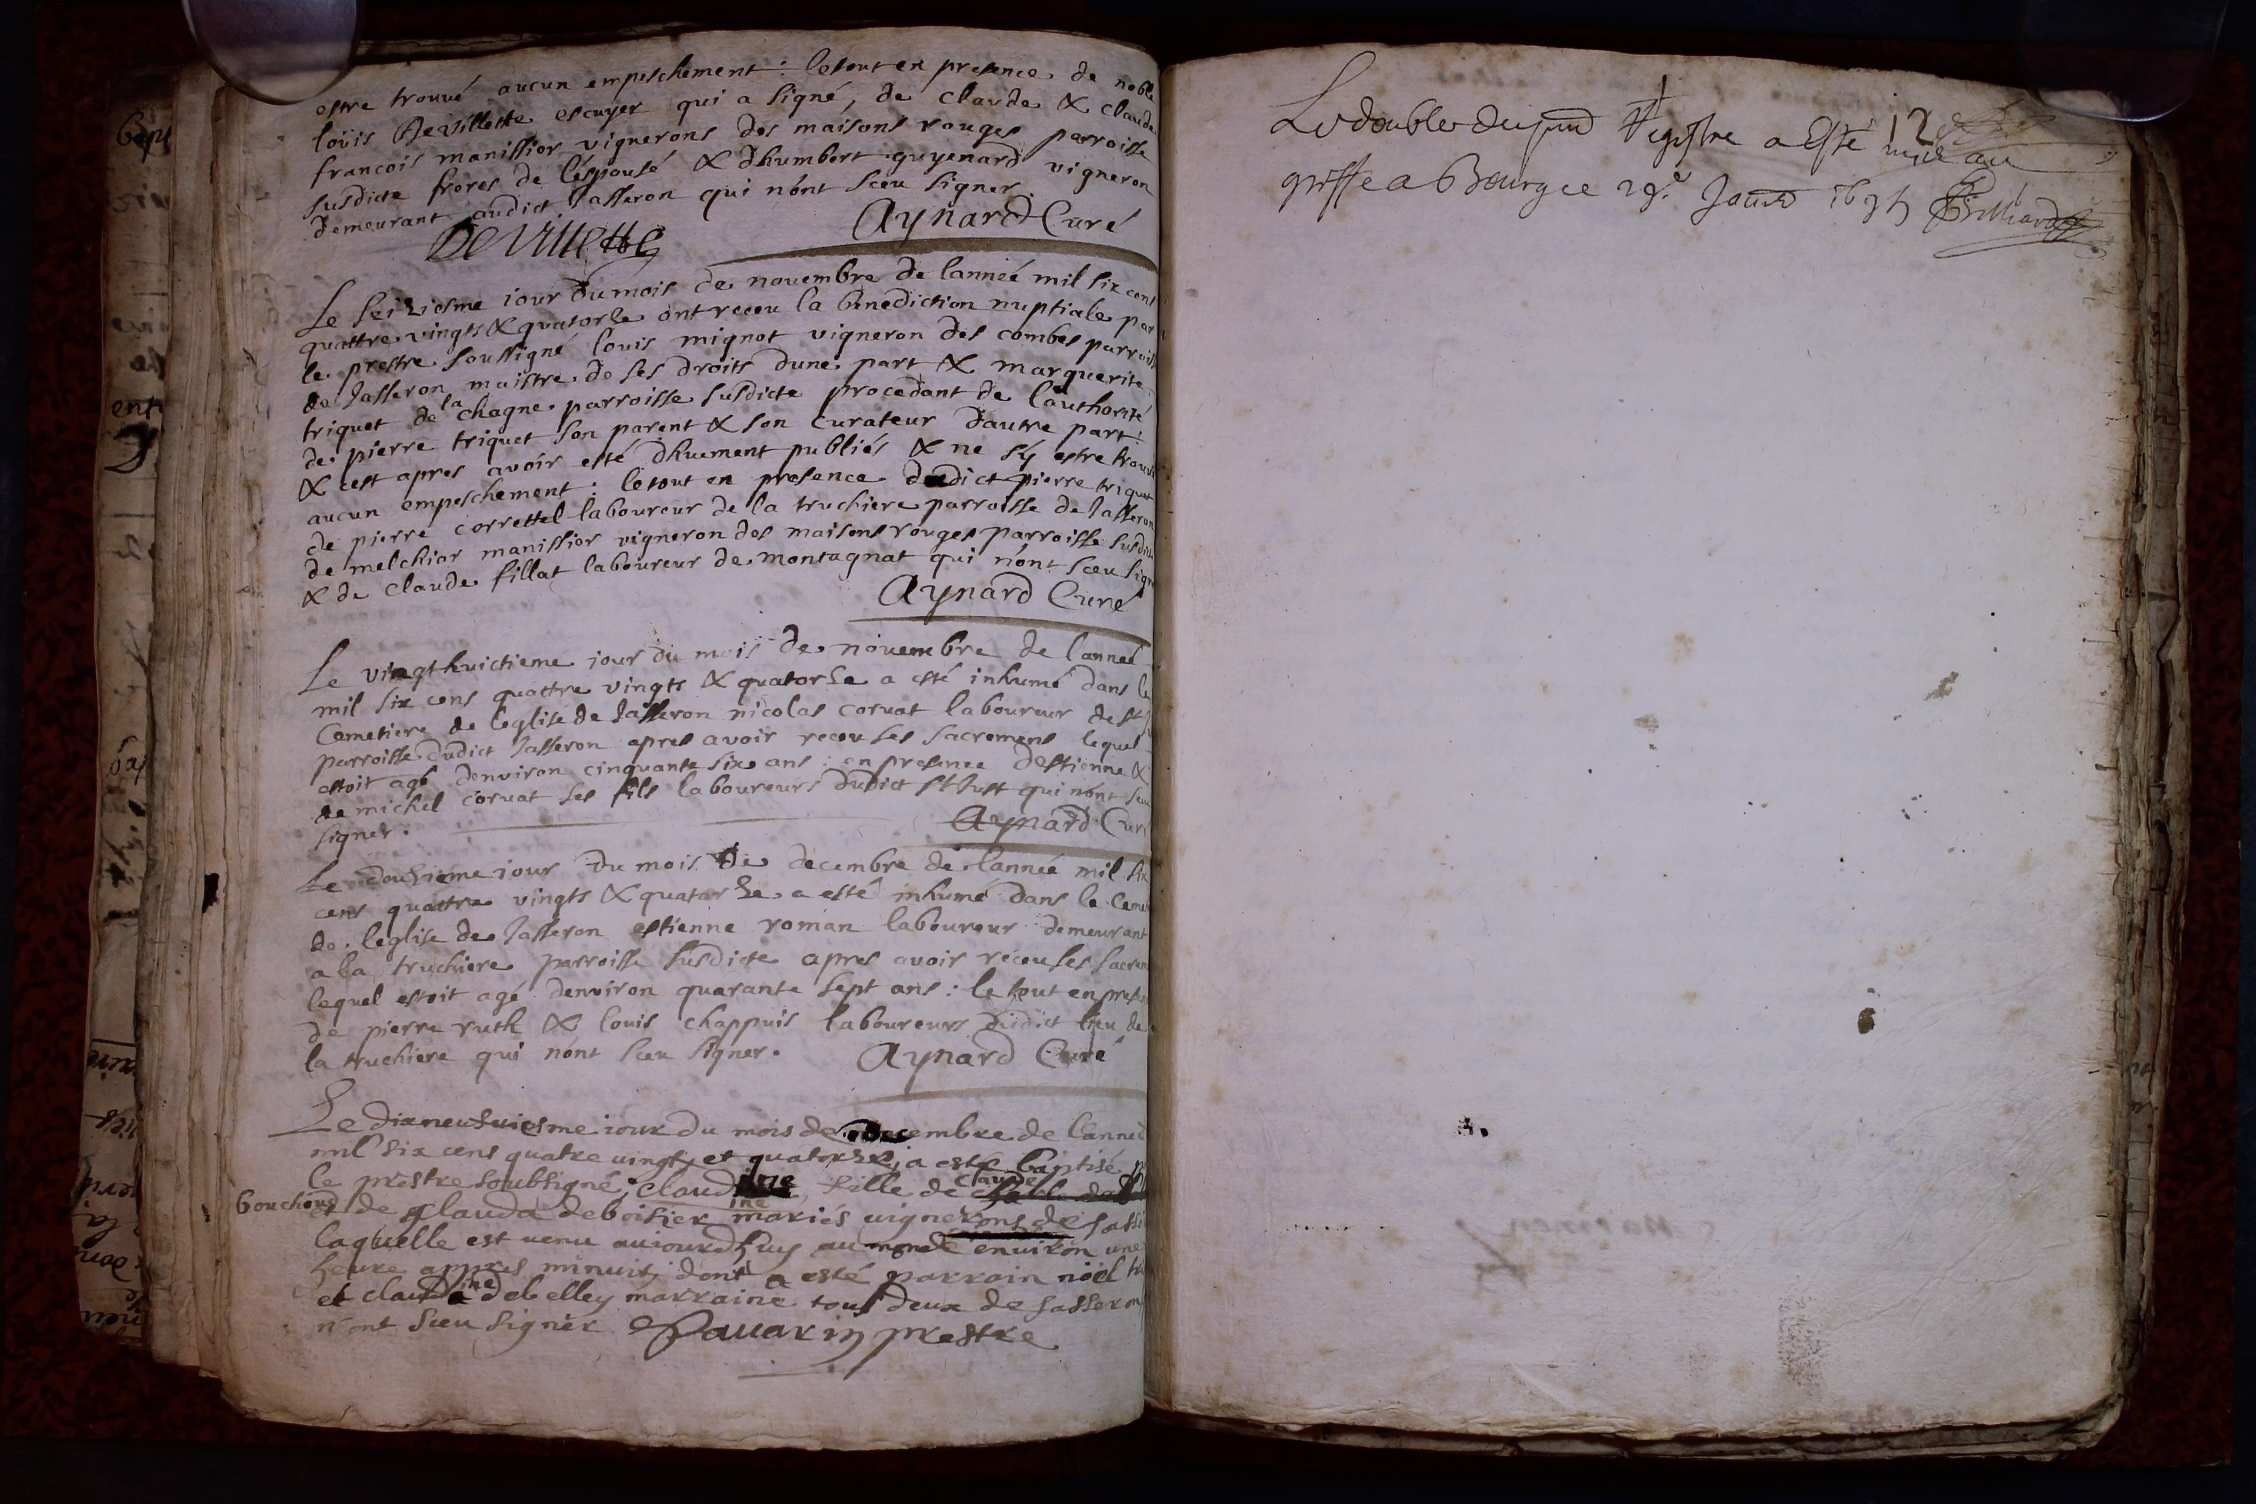 estre trouvé aucun empeschement : le tout en presence de noble
loüis De Villette escuyer qui a signé, de claude & claude
francois manissior vignerons des maisons rouges parroisse
susdicte freres de l'espousé & dhumbert guyenard vigneron
demeurant audict Jasseron qui nónt sceu signer.
De Villette Aynard Curé
Le seiziesme iour du mois de novembre de lanneé mil six cens
quattre vingts & quatorze ont receu la benediction nuptiale par
le prestre soussigné louis mignot vigneron des combes parroisse
de Jasseron maistre de ses droits dune part & marguerite
triquet de la chagne parroisse susdicte procedant de l'authorité
de pierre triquet son parent & son curateur d'autre part
& cest apres avoir esté dhuement publiés & ne sý estre trouvé
aucun empeschement : le tout en presence dudict pierre triquet
de pierre correttel laboureur de la truchiere parroisse de Jasseron
de melchior manissior vigneron des maisons rouges parroisse susdicte
& de claude fillat laboureur de montagnat qui nónt sceu signer
Aynard Curé
Le vingthuictieme iour du mois de novembre de lanneé
mil six cens quattre vingts & quatorze a esté inhumé dans le
Cemetiere de leglise de Jasseron nicolas corvat laboureur de st J
parroisse dudict Jasseron apres avoir receu ses sacremens lequel
estoit agé denviron cinquante six ans : en presence destienne &
de michel corvat ses fils laboureurs dudict st Just qui nónt sceu
signer. Aynard Curé
Le douziéme iour du mois de decembre de lannéé mil six
cens quattre vingts & quatorze a esté inhumé dans le Ceme
de leglise de Jasseron estienne roman laboureur demeurant
a la truchiere parroisse susdicte apres avoir réceu ses sacrem
lequel estoit agé denviron quarante sept ans : le tout en presen
de pierre ruth & louis chappuis laboureurs dudict lieu de
la truchiere qui nónt sceu signer. Aynard Curé
Le dixneufviesme iour du mois de decembre de lanneé
mil six cens quatre vingt et quatorze a esté baptisé p
le prestre soubsigné, claudine, fille de claude
bouchous et de clauda ine deboisier mariés vignerons de Jasse
laquelle est venu auiourdhuy au monde environ une
heure appres minuit, dont a esté parrain noël
et claudine debelley marraine tous deux de Jasseron
n'ont sceu signer Pavarin prestre
12
Le double du pnt Registre a Esté mis au
greffe a Bourg ce 29e Janv